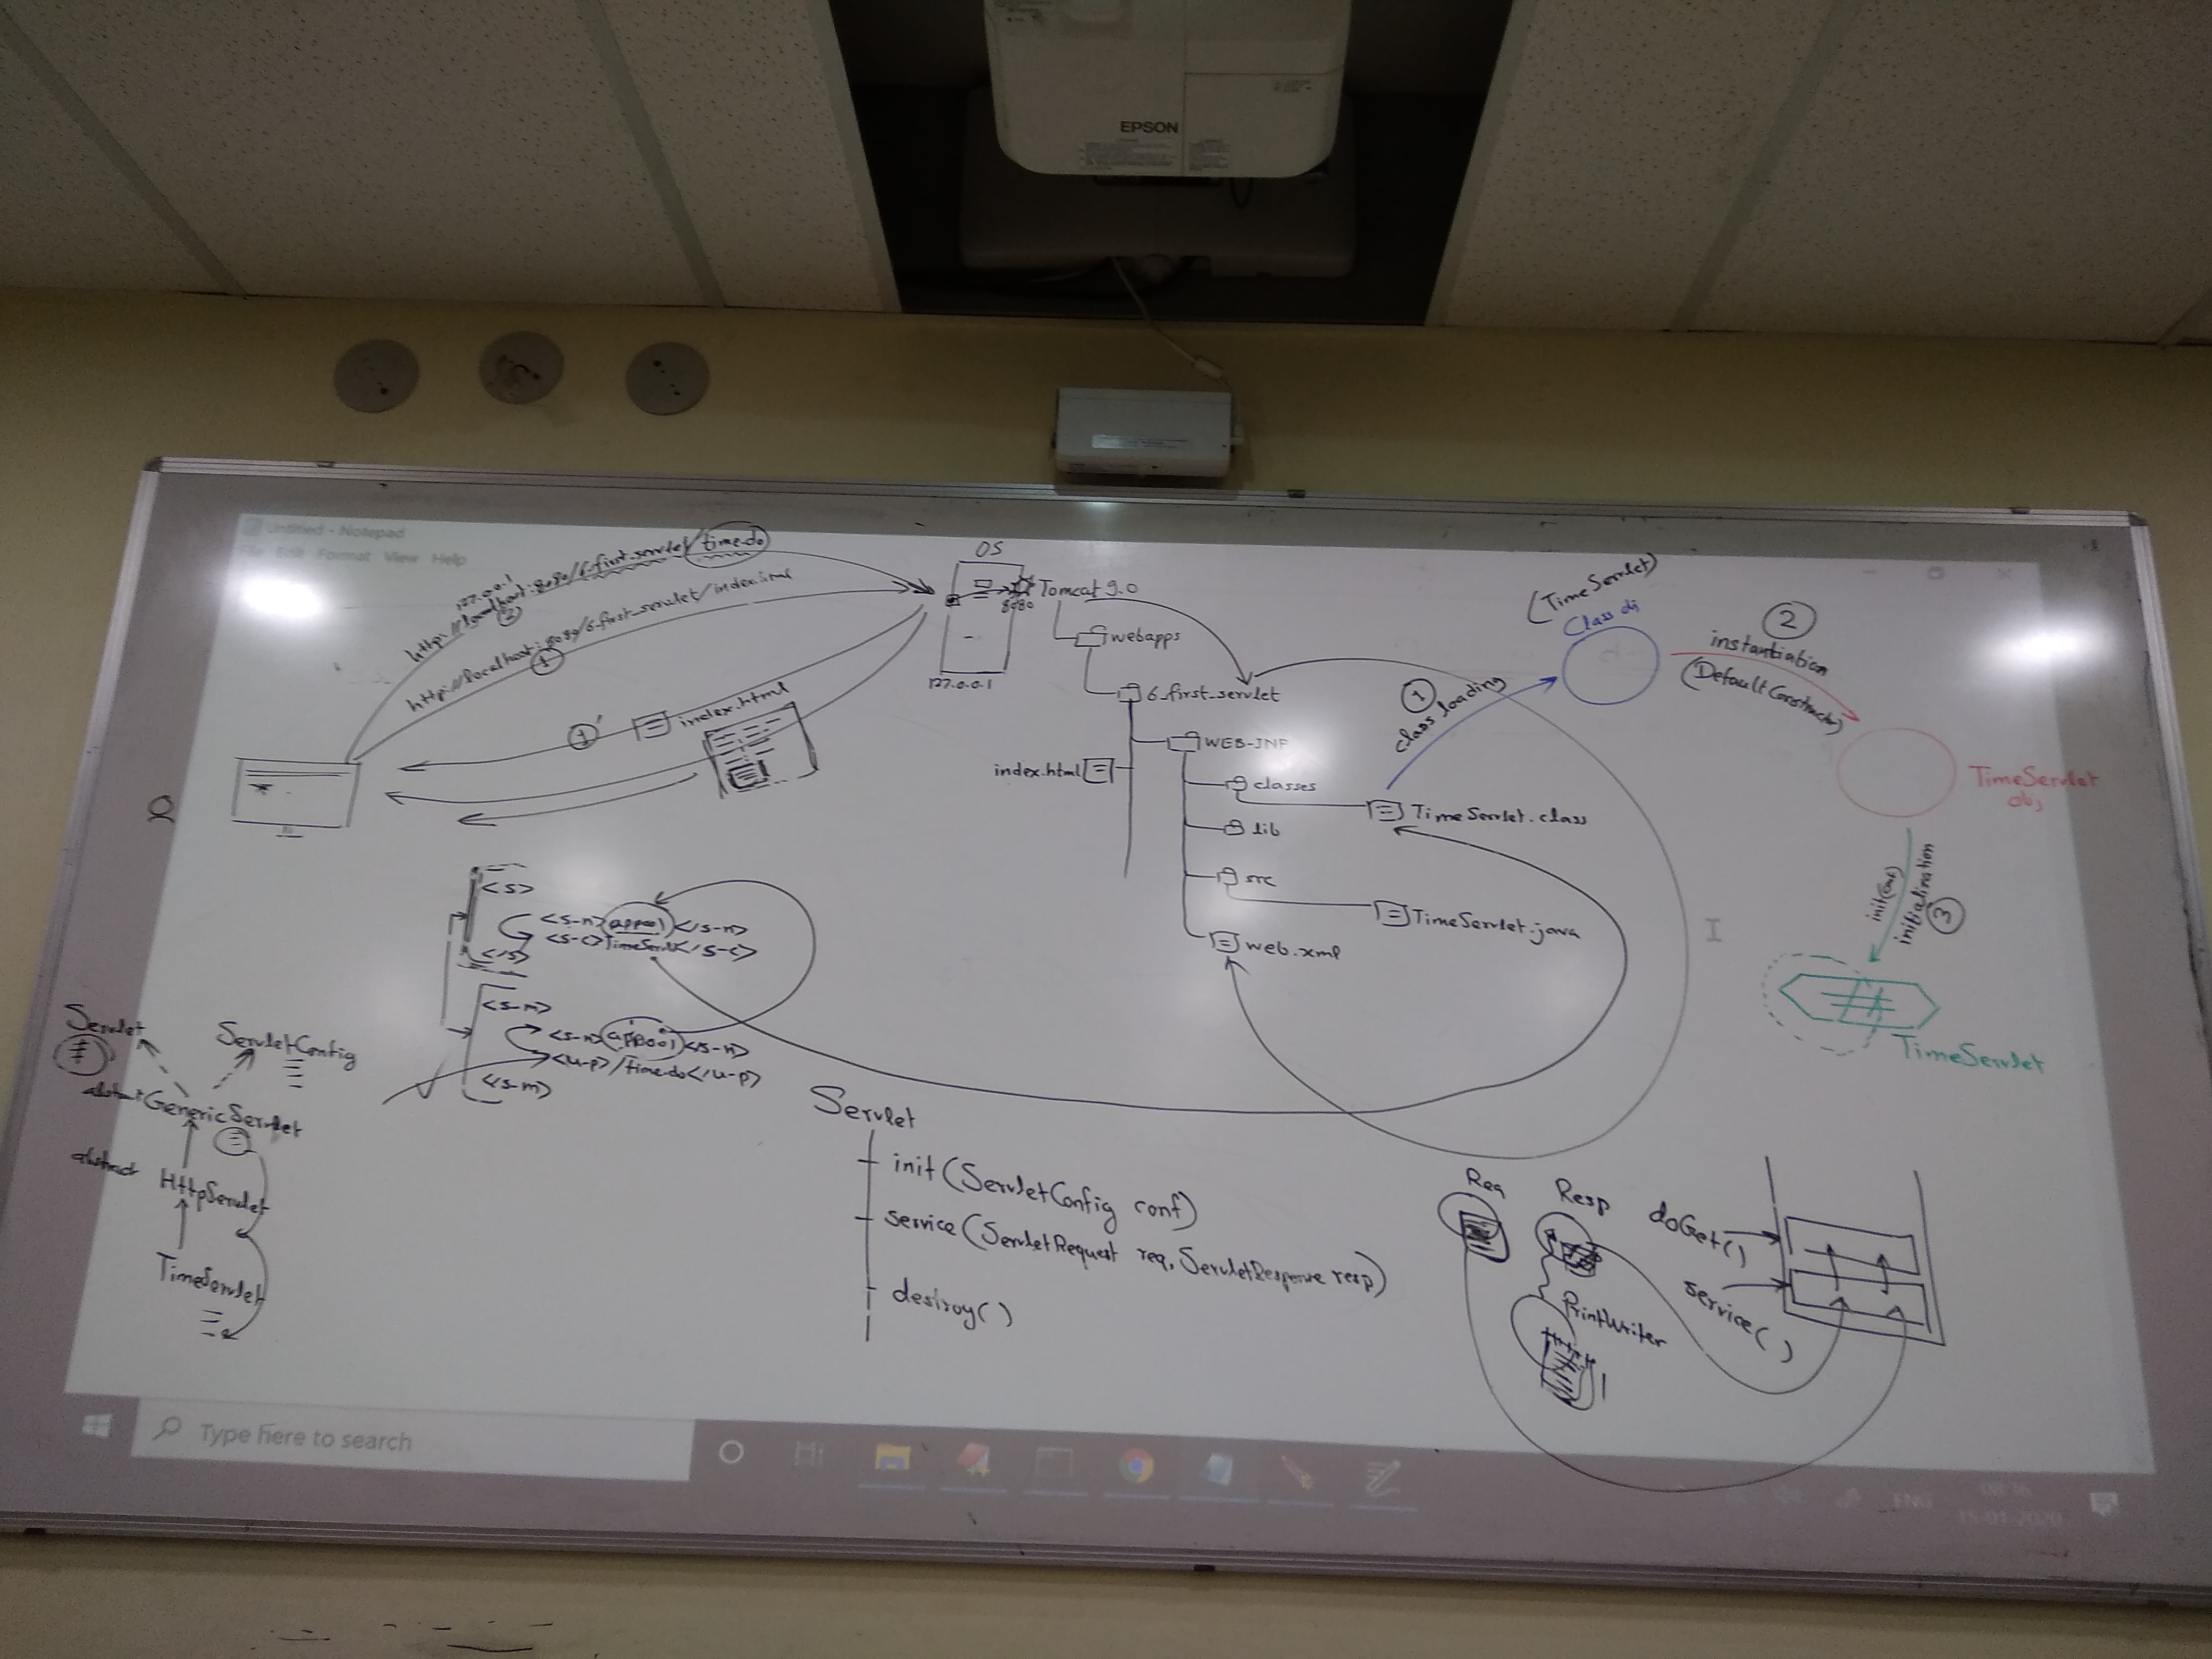 EPSON
Untitled - Notepad
File Edit Format View Help
127.0.0.1
http://localhost:8080/6-first-servlet/time.do
2
http://localhost:8080/6-first_servlet/index.html
1
1'
index.html
OS
8080
Tomcat 9.0
127.0.0.1
webapps
6_first_servlet
WEB-INF
index.html
classes
TimeServlet.class
lib
src
TimeServlet.java
web.xml
1
class loading
(TimeServlet)
Class obj
2
instantiation
(Default Constructor)
TimeServlet
obj
init(conf)
initialization
3
TimeServlet
<s>
<s-n>app001</s-n>
<s-c>TimeServlet</s-c>
</s>
<s-m>
<s-n>app001</s-n>
<u-p>/time.do</u-p>
</s-m>
Servlet
ServletConfig
abstract GenericServlet
abstract HttpServlet
TimeServlet
Servlet
init(ServletConfig conf)
service(ServletRequest req, ServletResponse resp)
destroy()
Req
Resp
PrintWriter
doGet()
service()
Type here to search
ENG
15-01-2020